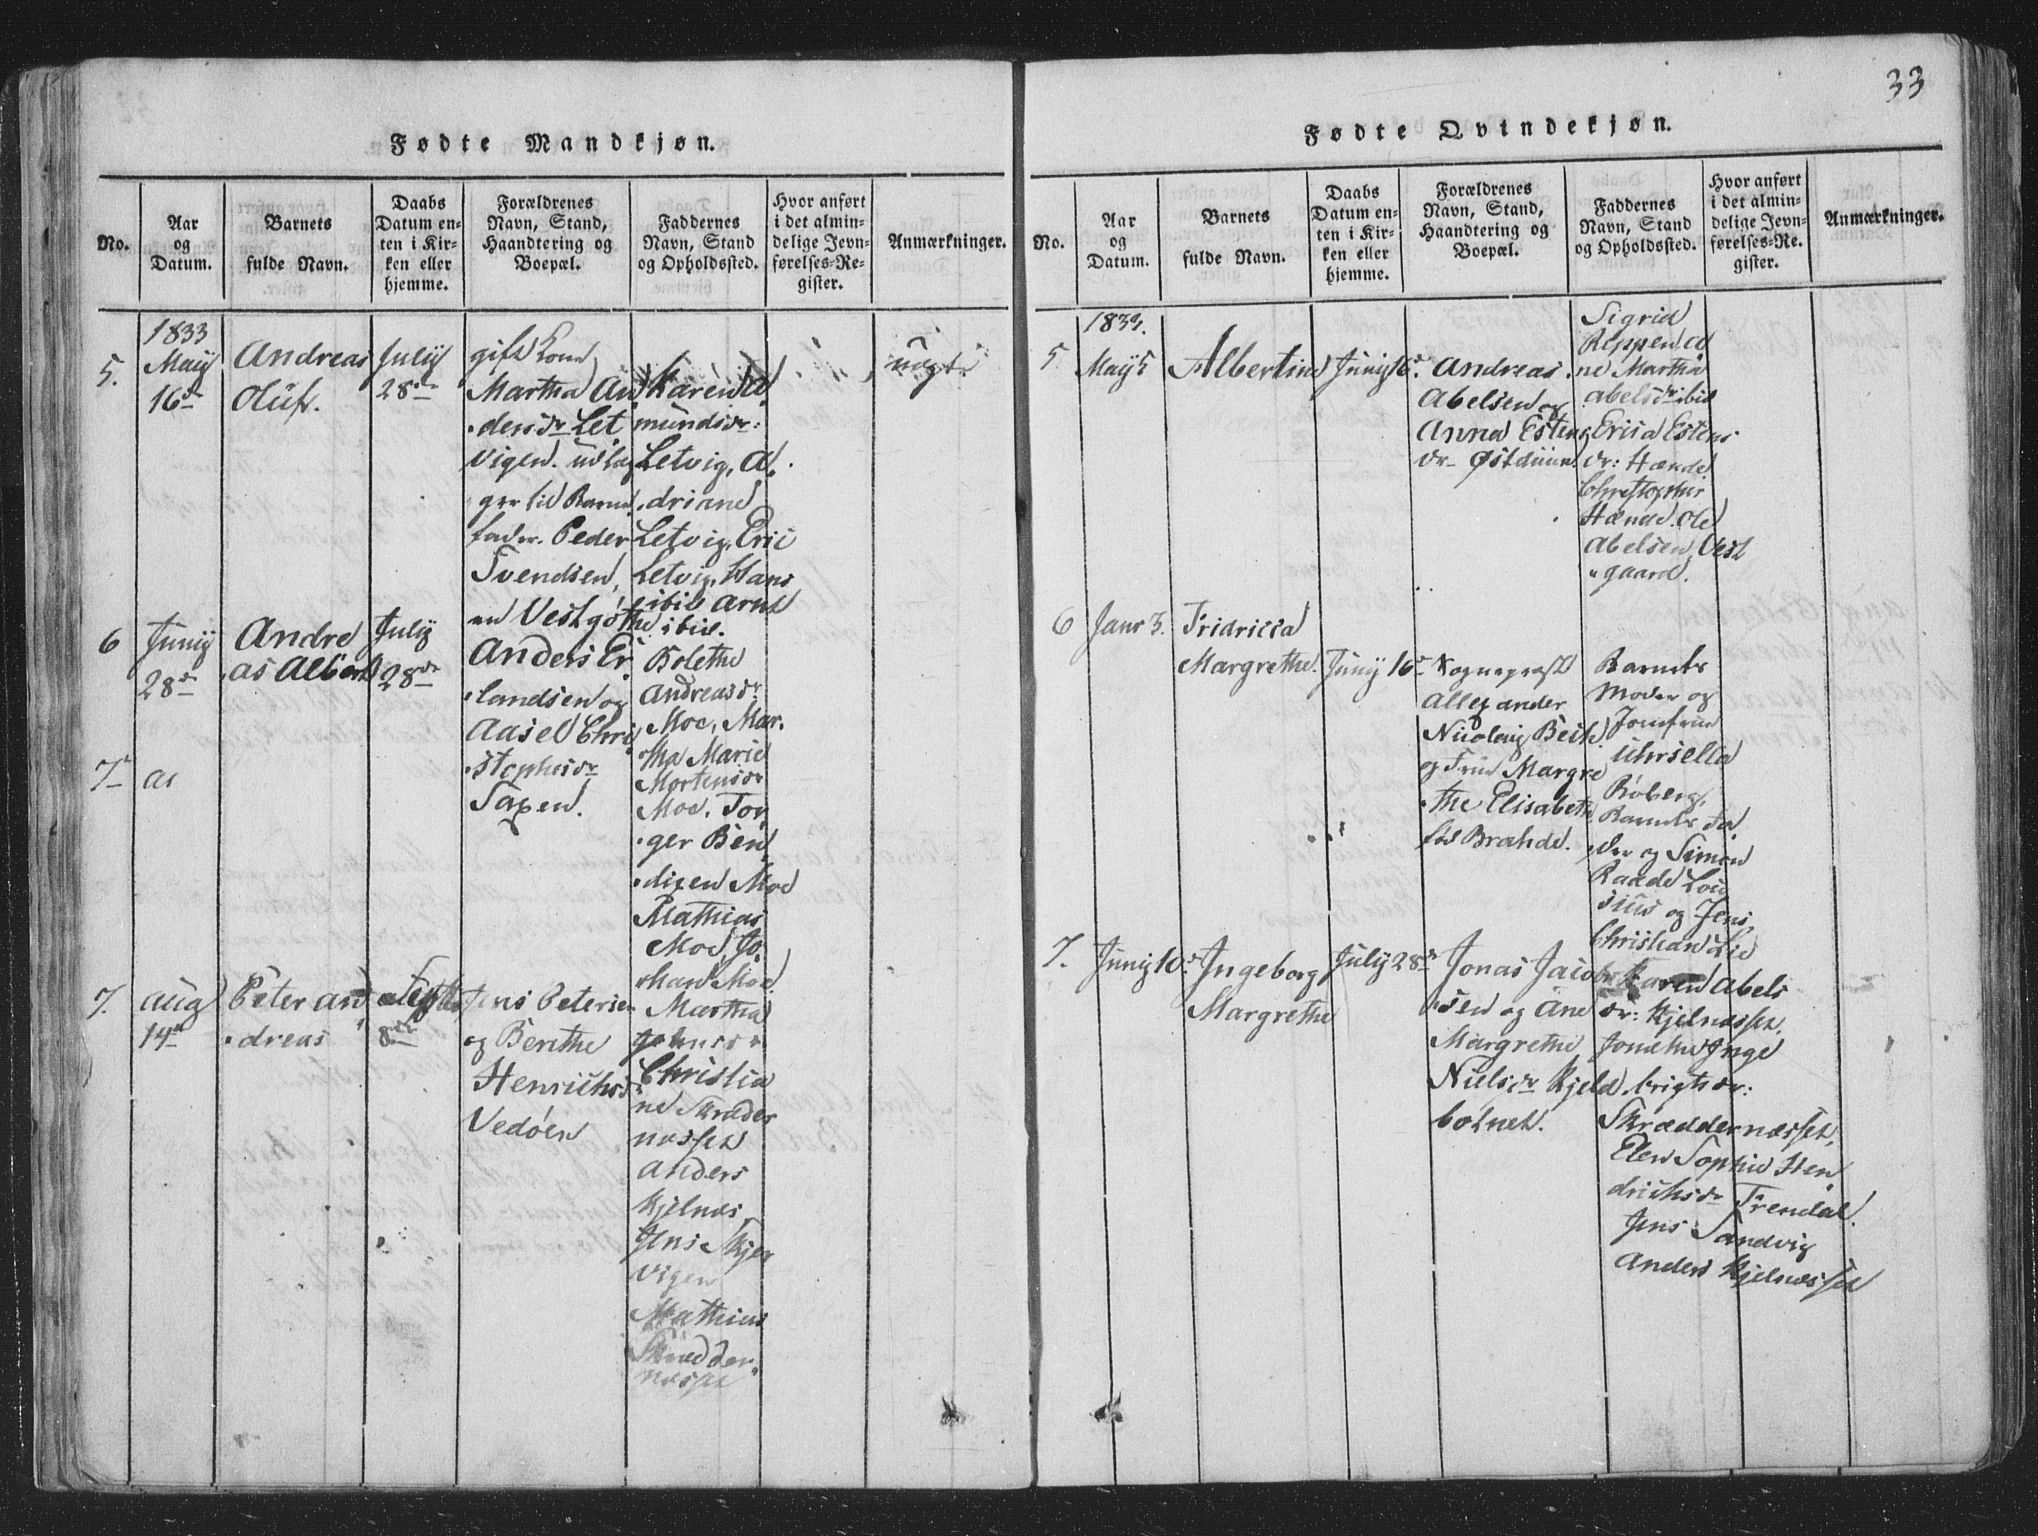 33
Fødte Mandkjøn.
No.
Aar
og
Datum.
Barnets
fulde Navn.
Daabs
Datum en-
ten i Kir-
ken eller
hjemme.
Forældrenes
Navn, Stand,
Haandtering og
Boepæl.
Faddernes
Navn, Stand
og Opholdssted.
Hvor anført
i det almin-
delige Jevn-
førelses-Re-
gister.
Anmærkninger.
5.
1833
May
16de
Andreas
Oluf.
July
28de
gift Kone
Martha An
dersdr Let
vigen. udlæg
ger til Barne
fader. Peder
Svendsen,
en Vestgöthe
Karen A
mundsdr:
Letvig, A.
driane
Letvig, Eric
Letvig, Hans
ibid Arnt
ibid.
uægte
6
Juny
28de
Andre
as Albert
July
28de
Anders Er
landsen og
Aasel Chri
stophesdr
Saxen.
Bolethe
Andreasdr
Moe, Mar.
tha Marie
Mortensdr
Moe. Tor
ger Ben
dixen Moe
Mathias
Moe, Jo.
han Moe
7de
as
7.
Aug
14de
Peter An
dreas
Septbr
8de
Jens Petersen
og Berethe
Henrichsdr
Vedöen
Martha
Johnsdr
Christia
ne Skræder
næsset
Anders
Kjelnæs
Jens Skjer
vigen
Mathias
Skrædder
næsset
Fødte Qvindekjøn.
No.
Aar
og
Datum.
Barnets
fulde Navn.
Daabs
Datum en-
ten i Kir-
ken eller
hjemme.
Forældrenes
Navn, Stand,
Haandtering og
Boepæl.
Faddernes
Navn, Stand
og Opholdssted.
Hvor anført
i det almin-
delige Jevn-
førelses-Re-
gister.
Anmærkninger.
1833.
5
May 5
Albertine
Juny 16de
Andreas
Abelsen og
Anna Estens
dr Østduun.
Sigrid
Reppen A
ne Martha
Abelsdr ibid
Erica Estens
dr: Hænde
Christopher
Hænde. Ole
Abelsen Vest
gaard.
6
Janr 3.
Fridricca
Margrethe.
Juny 16de
Sognepræst
Allexander
Nicolay
og Frue Margre
the Elisabeth
fød Brahde.
Barnets
Moder og
Jomfrue
Uhrsella
Röberg,
Barnets Fa
der og Simon
og Jens
Christian Lie
7.
Juny 10de
Ingeborg
Margrethe
July 28de
Jonas Jacob
sen og Ane
Margrethe
Nielsdr Kjeld
botnet.
Karen Abels
dr: Kjelnæsset,
Inge
brigtsdr:
Skræddernæsset,
Elen Sophie Hen
drichsdr Trendal.
Jens Sandvig
Anders Kjelnæsset